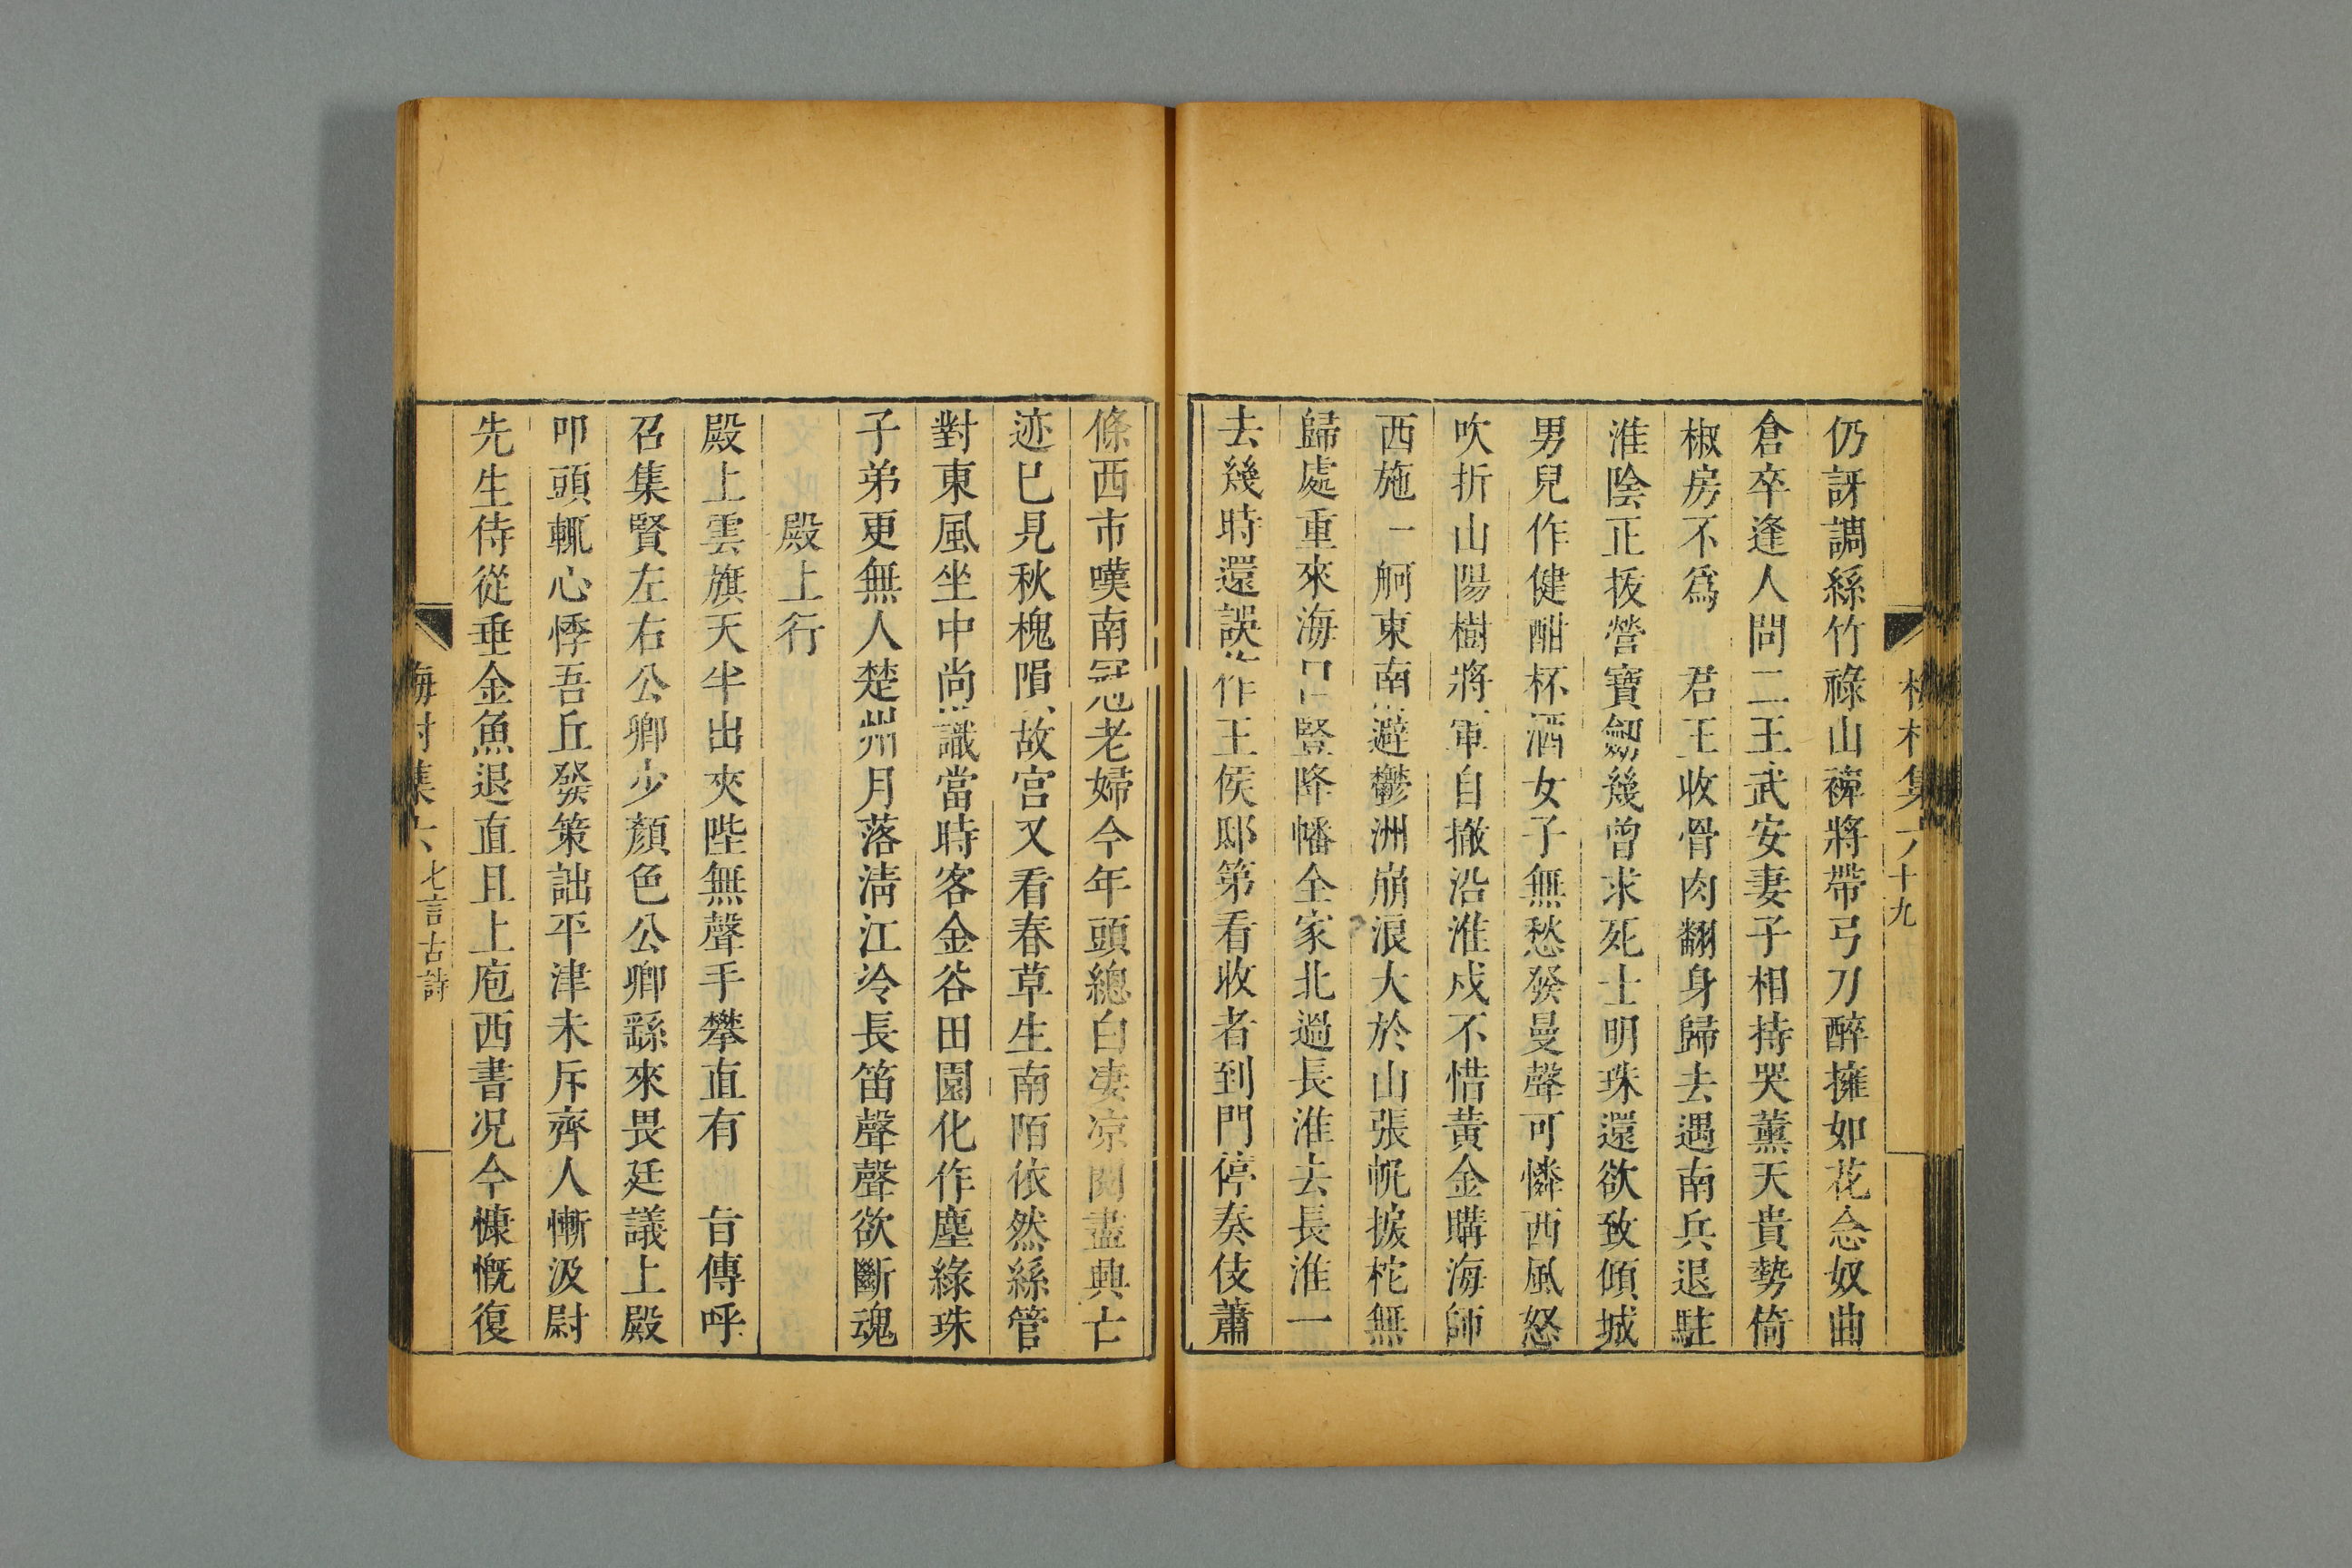 仍訝調絲竹祿山裨將帶弓刀醉擁如花念奴曲
倉卒逢人問二王武安妻子相持哭薰天貴勢倚
椒房不爲君王收骨肉翻身歸去遇南兵退駐
淮陰正拔營寶劒幾曾求死士明珠還欲致傾城
男兒作健酣杯酒女子無愁發曼聲可憐西風怒
吹折山陽樹將軍自撤沿淮戍不惜黃金購海師
西施一舸東南避鬱洲崩浪大於山張帆捩柁無
歸處重來海口豎降幡全家北過長淮去長淮一
去幾時還誤作王侯邸第看收者到門停奏伎蕭
條西市嘆南冠老婦今年頭總白凄凉閱盡興亡
迹巳見秋槐隕故宮又看春草生南陌依然絲管
對東風坐中尚識當時客金谷田園化作塵綠珠
子弟更無人楚州月落清江冷長笛聲聲欲斷魂
殿上行
殿上雲旗天半出夾陛無聲手攀直有旨傳呼
召集賢左右公卿少顏色公卿繇來畏廷議上殿
叩頭輒心悸吾丘發策詘平津未斥齊人慚汲尉
先生侍從垂金魚退直且上庖西書况今慷慨復
梅村集
十九
七言古詩